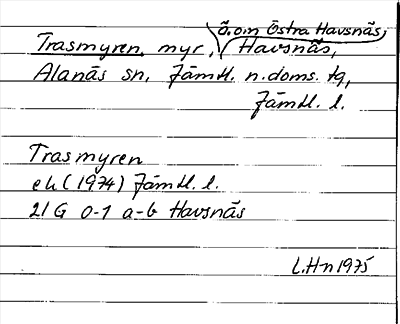 Ö.om Östra Havsnäs,
Trasmyren, myr, Havsnäs,
Alanäs sn, Jämtl. n. doms. tg,
Jämtl. l.
Trasmyren
ek (1974) Jämtl. l.
21 G 0-1 a-b Havsnäs
L.Hn 1975